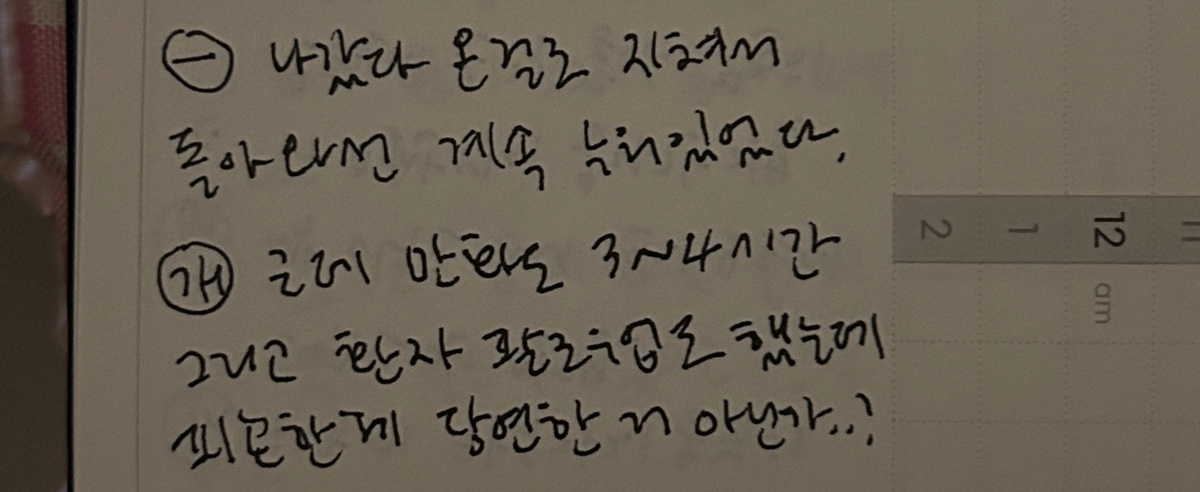 ㊀ 나갔다 온걸로 지쳐서
돌아와선 계속 누워있었다.
㉮ 근데 만화도 3~4시간
그리고 환자 팔로우업도 했는데
피곤한게 당연한 거 아닌가..?
2 1 12 11
cm